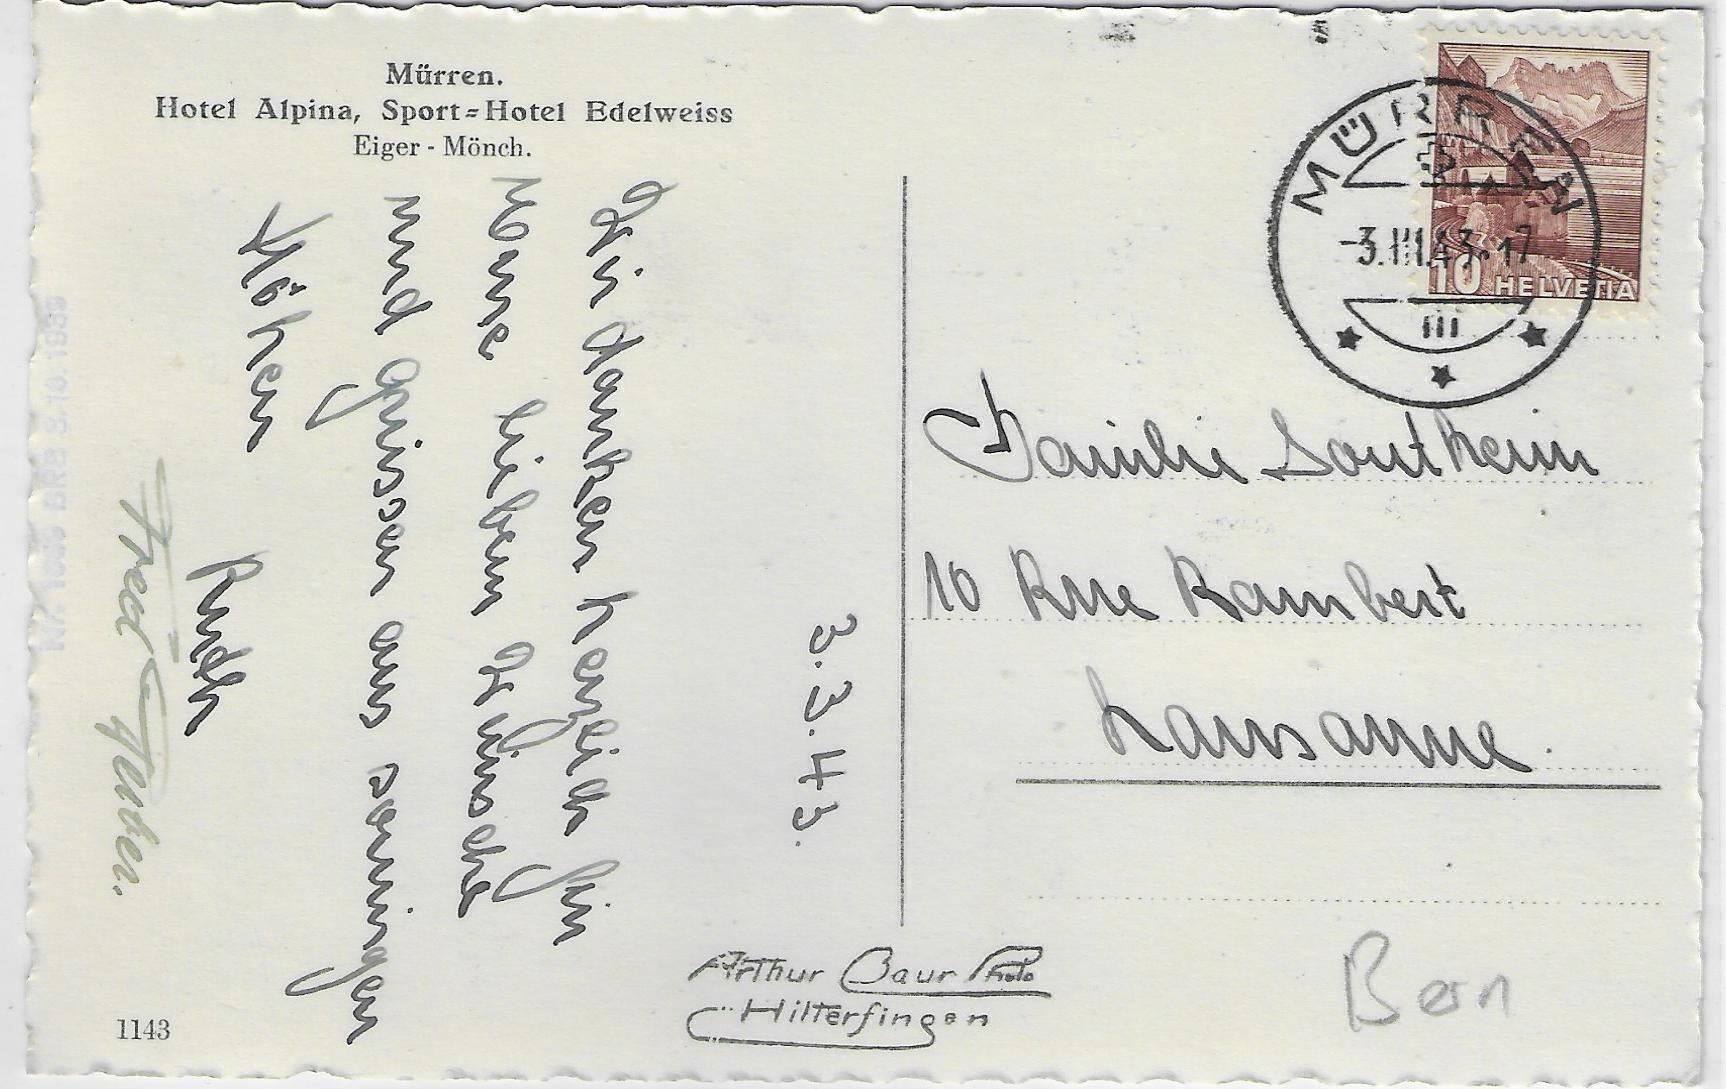 Mürren.
Hotel Alpina, Sport=Hotel Edelweiss
Eiger - Mönch.
3.3.43.
Wir danken herzlich für
Ihre lieben Wünsche
und grüssen aus sonnigen
Höhen
Ruth
Fred
Nr. 1039 BRB 3.10.1939
1143
Arthur Baur Photo
Hilterfingen
MÜRREN
-3.III.43.-17
III
10 HELVETIA
Familie Sontheim
10 Rue Rambert
Lausanne.
Bern